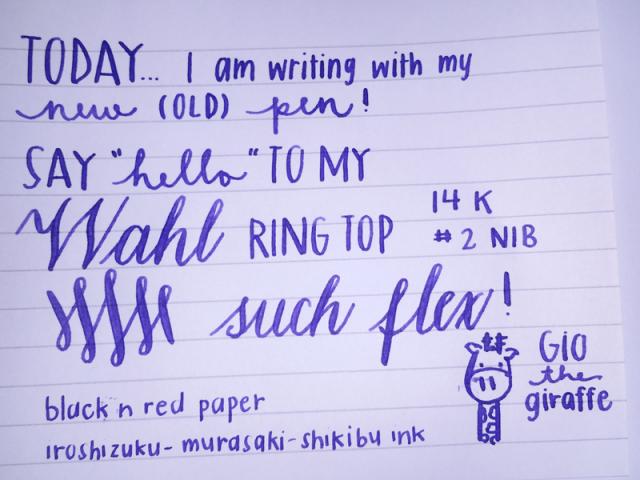 TODAY... I am writing with my
new (OLD) pen!
SAY "hello" TO MY
Wahl RING TOP
14 K
#2 NIB
such flex!
GIO
the
giraffe
black n red paper
iroshizuku-murasaki-shikibu ink